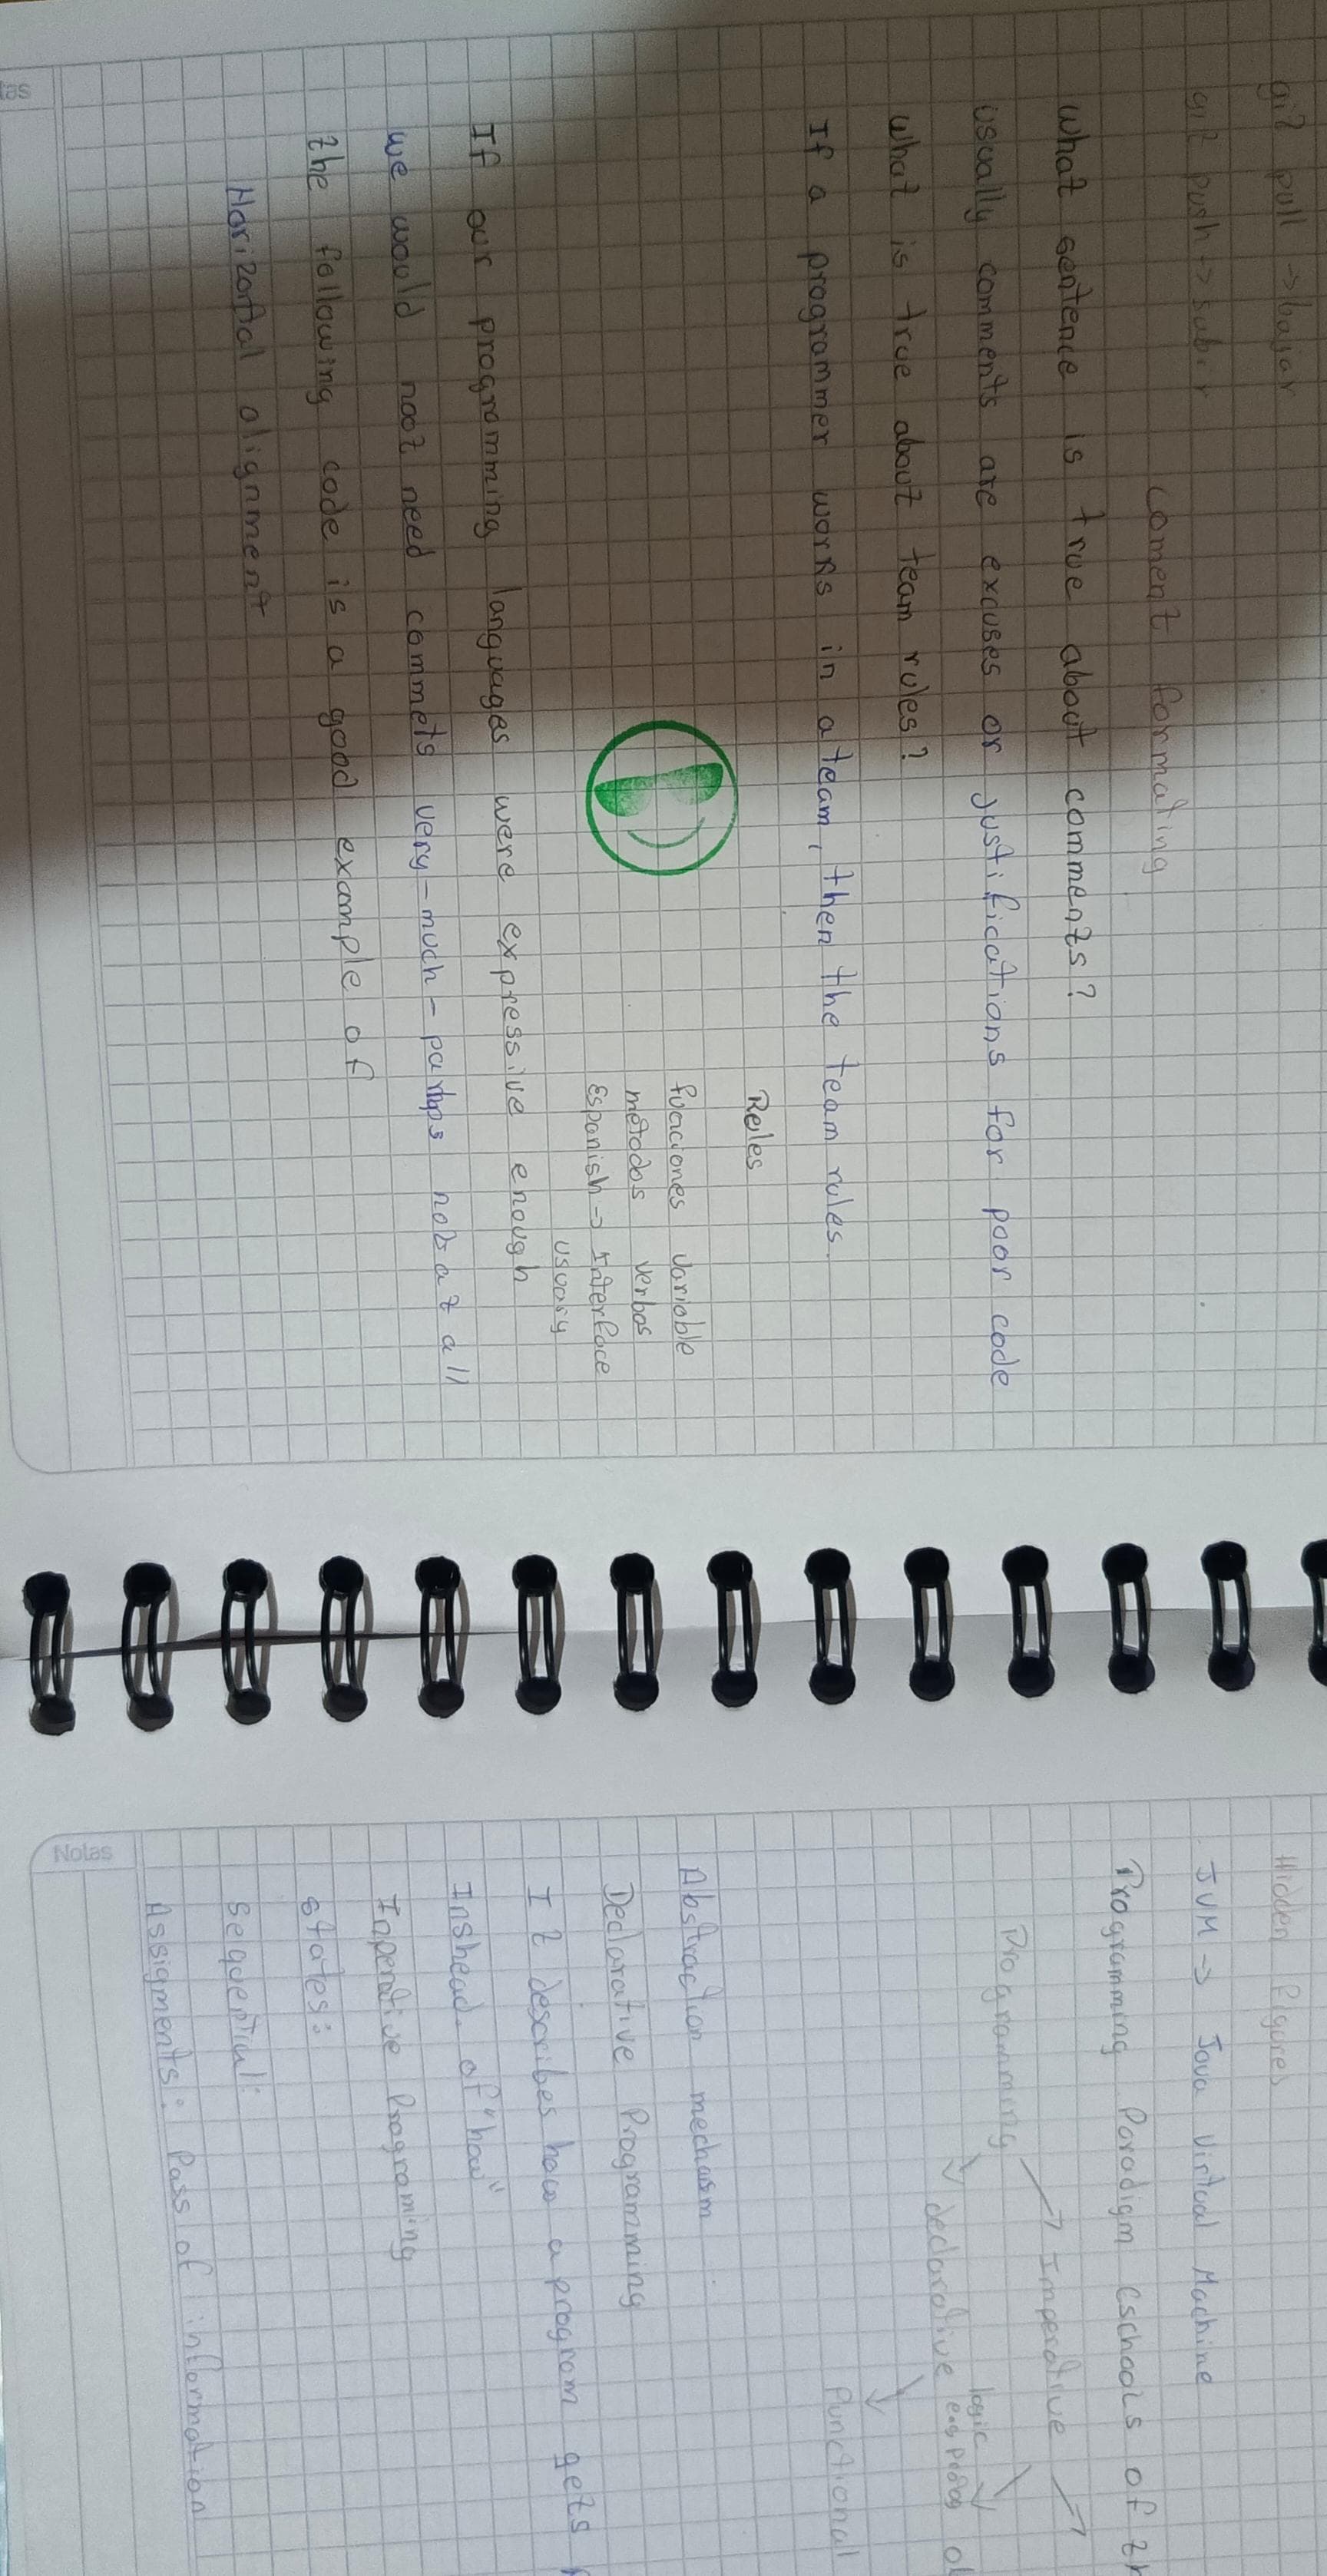 git pull -> bajar
git push -> subir
Coment formating
What sentence is true about comments?
Usually comments are excuses or justifications for poor code
What is true about team rules?
If a programmer works in a team, then the team rules.
Reles
funciones variable
métodos verbos
Espanish -> Interface
usuary
If our programming languages were expressive enough
we would noot need commets very-much- perhps not at all
the following code is a good example of
Horizontal alignment
tas
Hidden Figures
JVM -> Java Virtual Machine
Programming Paradigm (schools of th
Programming -> Imperative ->
-> declarative
logic
Functional
Abstraction
Declarative Programming
It describes how a program gets
Inshead of "how"
Inperative Programing
states:
sequential:
Assigments: Pass of information
Notas